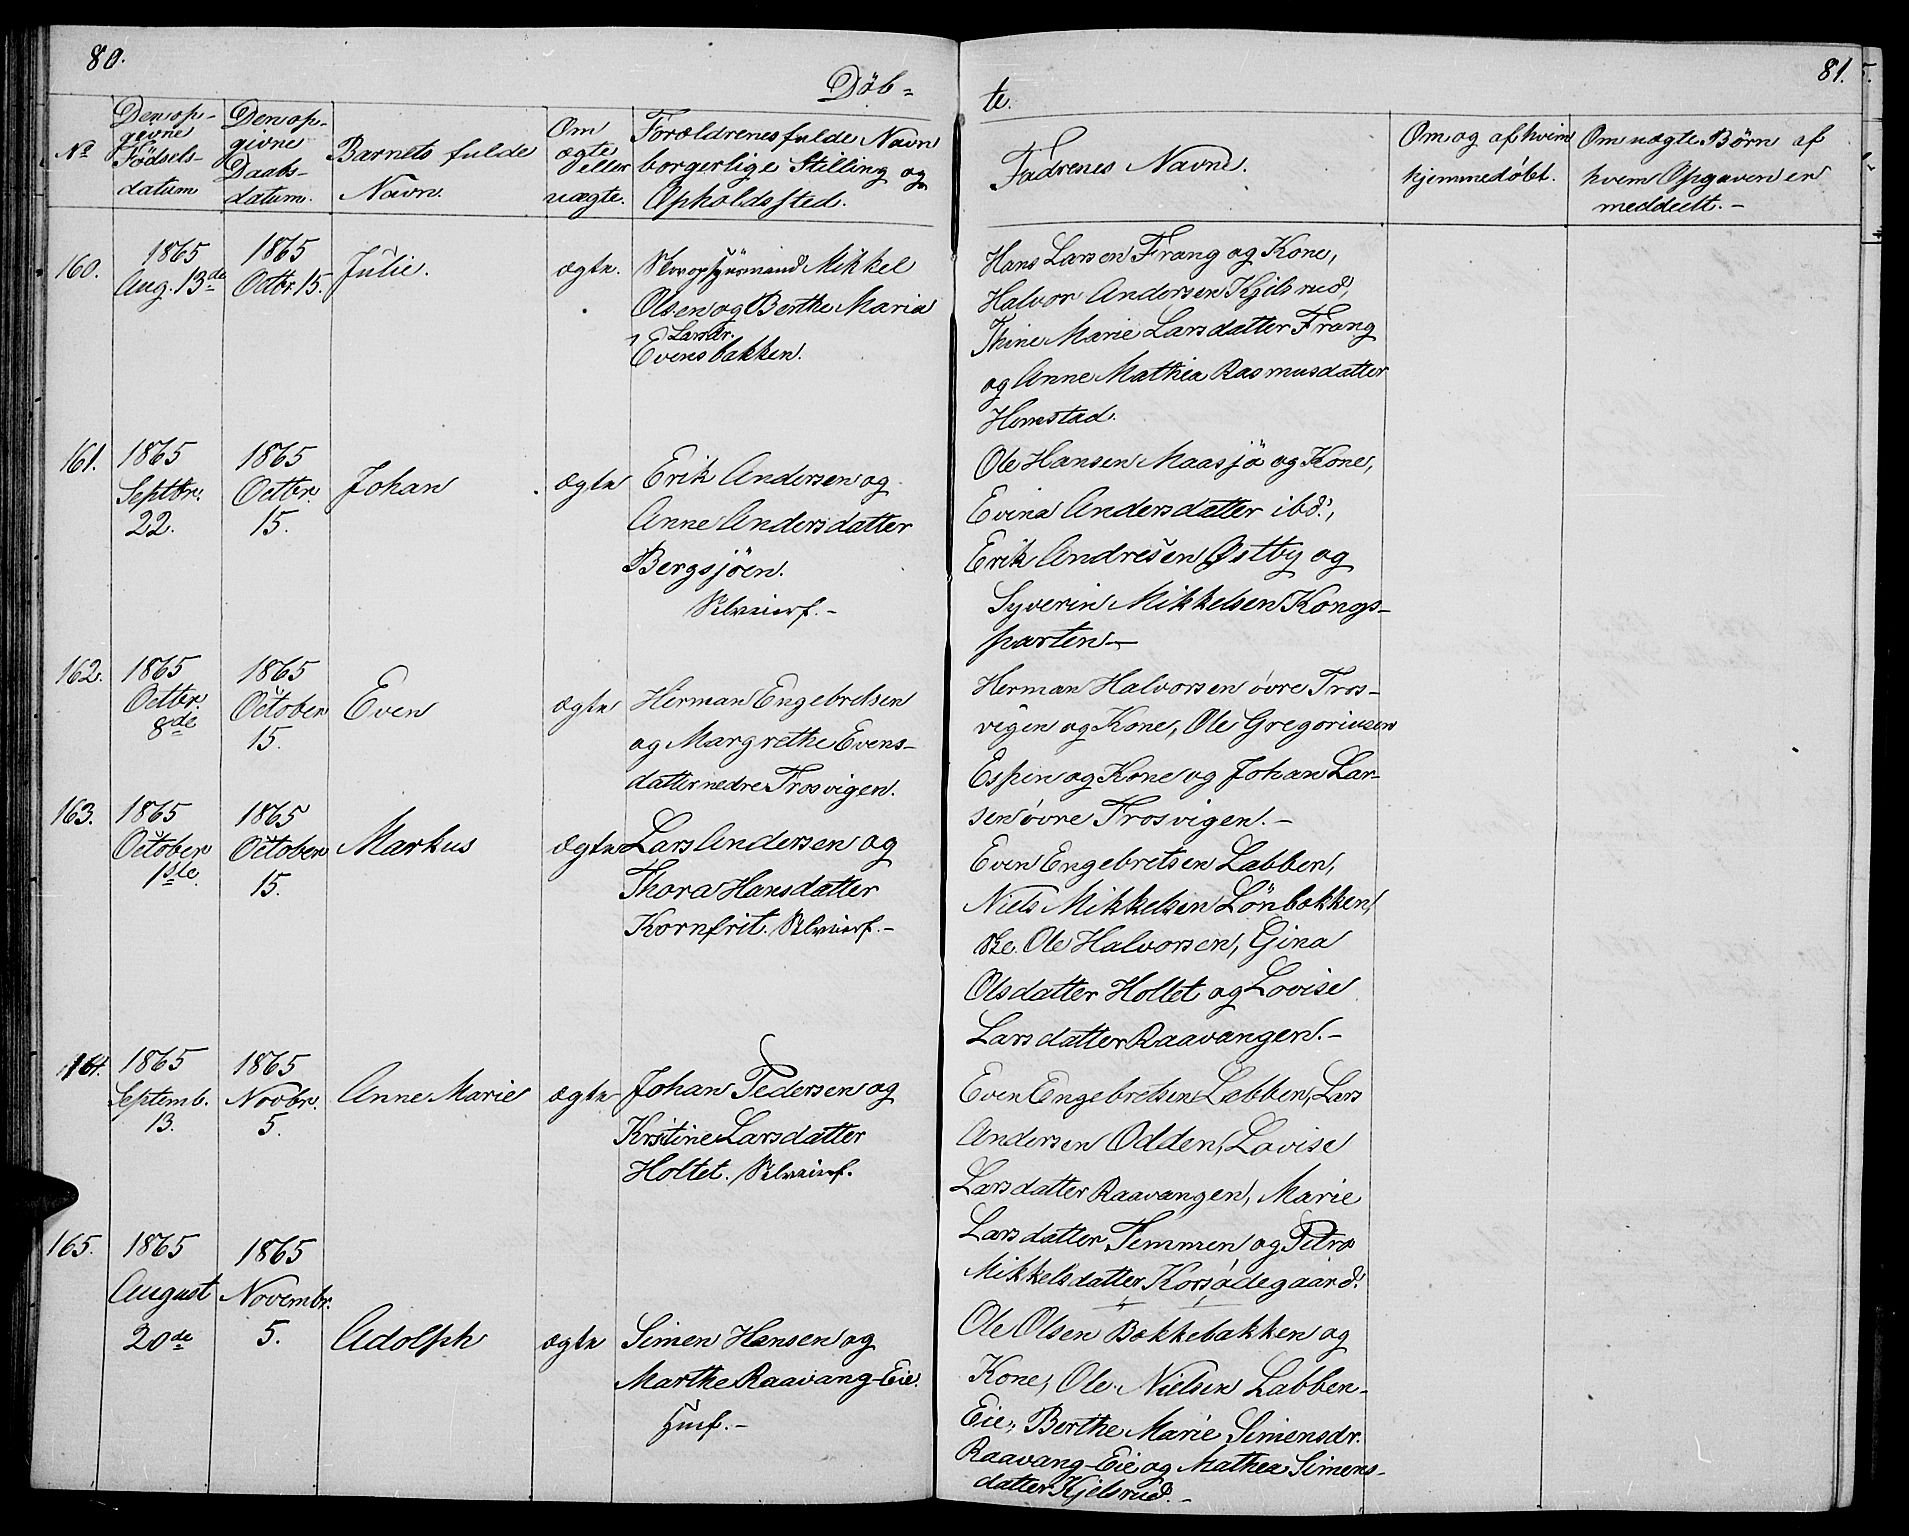 80.
Döb-
No
Den op-
givne
Födsels-
datum
Den op-
givne
Daabs-
datum.
Barnets fulde
Navn.
Om
ægte
eller
uægte.
Forældrenes fulde Navn
borgerlige Stilling og
Opholdssted.
160.
1865
Aug. 13de
1865
Octbr. 15.
Julie.
ægte.
Mikkel
Olsen og Berthe Maria
Larsdr.
Evensbakken.
161.
1865
Septbr.
22.
1865
Octbr.
15.
Johan
ægte
Erik Andersen og
Anne Andersdatter
Bergsjöen.
Selveierf.-
162.
1865
Octbr.
8de
1865
October
15.
Even
ægte
Herman Engebretsen
og Margrethe Evens-
datter nedre Frosvigen.
163.
1865
October
1ste.
1865
October
15.
Markus
ægte
Lars Andersen og
Thora Hansdatter
Kornfrit. Selveierf.-
164.
1865
Septemb.
13.
1865
Novbr.
5.
Anne Marie
ægte
Johan Pedersen og
Kristine Larsdatter
Holtet. Selveierf.
165.
1865
August
20de
1865
Novembr.
5.
Adolph
ægte
Simen Hansen og
Marthe Raavang-Eie.
Husf.-
81.
te.
Fadrenes Navne.
Om og af hvem
hjemmedøbt.
Om uægte Børn af
hvem Opgaven er
meddeelt.-
Hans Larsen Frang og Kone,
Halvor Andersen Kjelsrud,
Thine Marie Larsdatter Frang
og Anne Mathea Rasmusdatter
Homstad.
Ole Hansen Maasjö og Kone,
Evina Andersdatter ibd.,
Erik Andresen Østby og
Syverin Mikkelsen Kongs-
parten-
Herman Halvorsen övre Fros-
vigen og Kone, Ole Gregoriusen
Espen og Kone og Johan Lar-
sen övre Frosvigen.-
Even Engebretsen Labben,
Niels Mikkelsen Lönbakken,
Ole Halvorsen, Gina
Olsdatter Holtet og Lovise
Larsdatter Raavangen.-
Even Engebretsen Labben, Lars
Andersen Odden, Lovise
Larsdatter Raavangen, Marie
Larsdatter Temmen og Petra
Mikkelsdatter Korsödegaard.
Ole Olsen Bakkebakken og
Kone, Ole Nielsen Labben-
Eie, Berthe Marie Simensdr.
Raavang-Eie og Mathea Simens-
datter Kjelsrud.-